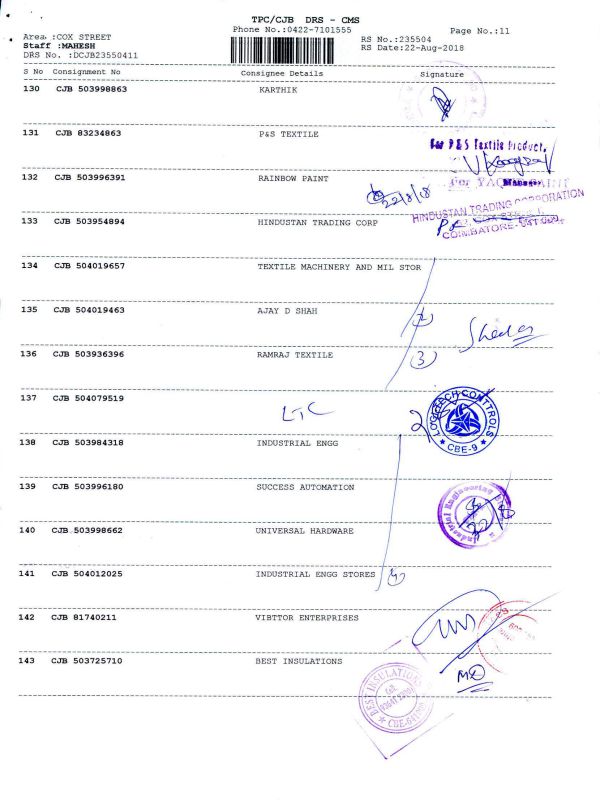 TPC/CJB DRS - CMS
Phone No.:0422-7101555
Page No.:11
Area :COX STREET
RS No.:235504
Staff :MAHESH
RS Date:22-Aug-2018
DRS No. :DCJB23550411
S No Consignment No Consignee Details Signature
130 CJB 503998863 KARTHIK
131 CJB 83234863 P&S TEXTILE
For P & S Textile Product.
132 CJB 503996391 RAINBOW PAINT
22/8/18
Manager
HINDUSTAN TRADING CORPORATION
133 CJB 503954894 HINDUSTAN TRADING CORP
COIMBATORE-
134 CJB 504019657 TEXTILE MACHINERY AND MIL STOR
135 CJB 504019463 AJAY D SHAH
136 CJB 503936396 RAMRAJ TEXTILE
3
137 CJB 504079519
LTC
2
CBE-9
138 CJB 503984318 INDUSTRIAL ENGG
139 CJB 503996180 SUCCESS AUTOMATION
140 CJB 503998662 UNIVERSAL HARDWARE
141 CJB 504012025 INDUSTRIAL ENGG STORES
142 CJB 81740211 VIBTTOR ENTERPRISES
143 CJB 503725710 BEST INSULATIONS
BEST INSULATIONS